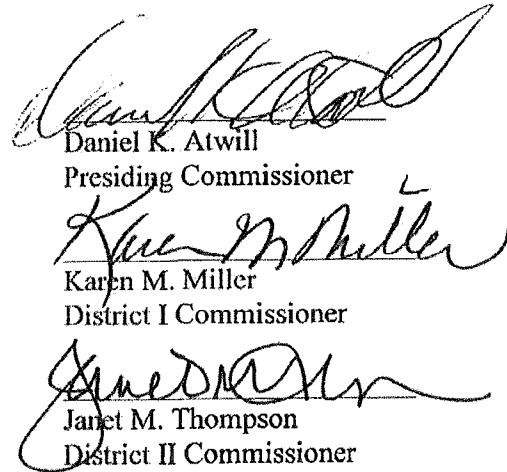 Daniel K. Atwill
Presiding Commissioner
Karen M Miller
Karen M. Miller
District I Commissioner
Janet M. Thompson
District II Commissioner